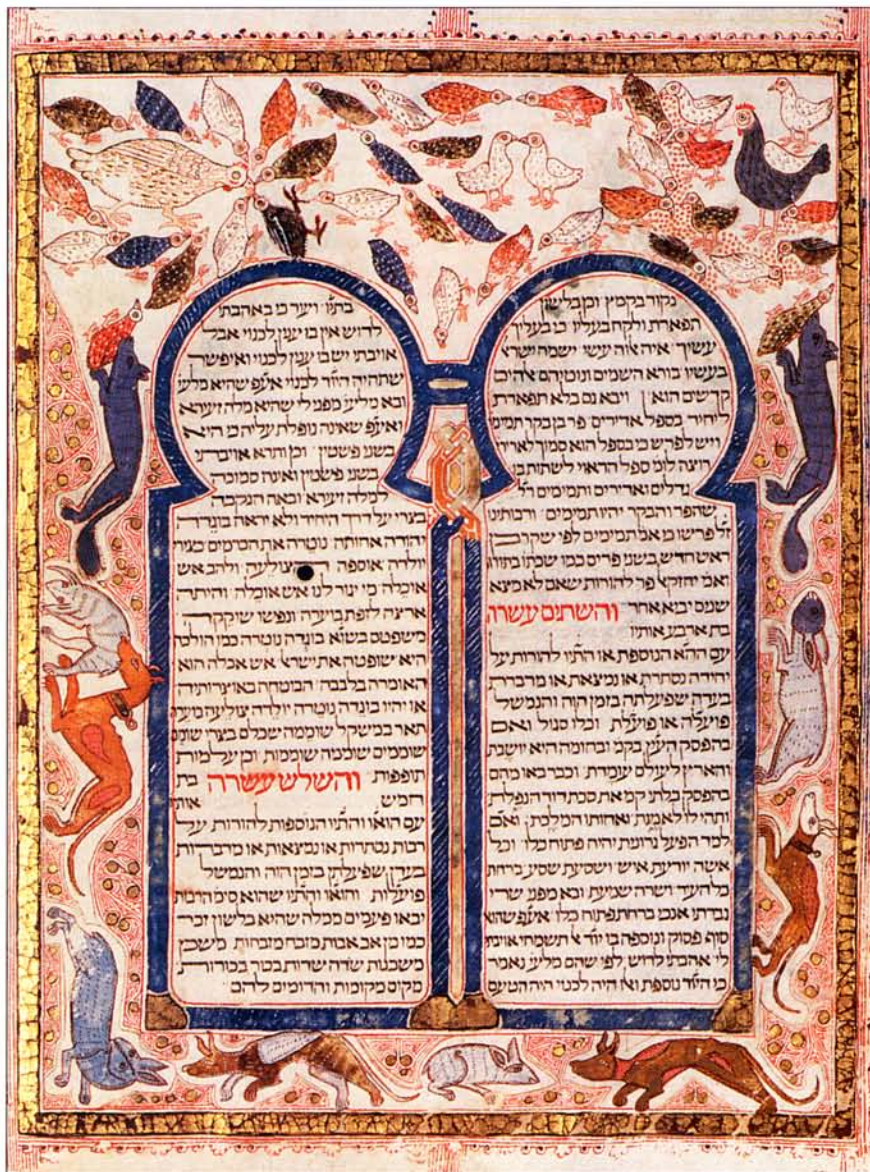 נקוד בקמץ וכן בלשון
תפארת ולקח בעליו כי בעליך
עשיך איה אוה עשי ישמח ישרא
בעשיו בורא השמים ונוטיהם אלהים
קדשים הוא ויבא גם בלא תפארת
ליחיד בספל אדירים פר בן בקר תמימי
ויש לפרש כי בספל הוא סמוך לאדירי
רוצה לומ ספל הראוי לשתות בו
גדלים ואדירים ותמימים רל
שהפר והבקר יהיו תמימים ורבותינו
זל פרשו מאמ תמימים לפי שקרבן
ראש חדש בשני פרים כמו שכתו בתורה
ואמ יחזקא פר להורות שאם לא מצא
שנים יביא אחד והשתים עשרה
בת ארבע אותיו
עם ההא הנוספת או התיו להורות על
יחידה נסתרת או נמצאת או מדברת
בעדה שפעלתה בזמן הזה והנמשל
פועלה או פועלת וכלו סגול ואם
בהפסק העין בקמ ובחומה היא יושבת
והארץ לעולם עומדת וכבר באו מהם
בהפסק בלתי קמ את סכת דויד הנפלת
ותהי לו לאמנת ואחותו המלכת ואם
למד הפועל גרונית יהיה פתוח כלו וכל
אשה יודעת איש ושסעת שסע ברחת
כל העיר ושרה שמעת ובא מפני שרי
גברתי אנכי ברחת פתוח כלו אעפ שהוא
סוף פסוק ונוספה בו יוד א תשמחי אויבתי
לי אהבתי לדוש לפי שהם מלעי נאמר
כי היוד נוספת ואו היה לכנוי היה הטעם
בתיו ויער כי באהבתי
לדוש אין בו ענין לכנוי אבל
אויבתי יש בו ענין לכנוי ואיפשר
שתהיה היוד לכנוי אעפ שהיא מלעי
ובא מלעי מפני לי שהיא מלה זעירא
ואעפ שאינה נופלת עליה כי היא
בשני פשטין וכן ותרא אויבתי
בשני פשטין ואינה סמוכה
למלה זעירא ובאה הנקבה
בצרי על דרך היחיד ולא יראה בוגדה
יהודה אחותה נוטרה את הכרמים כצירי
יולדה אוספה צולעה ולהב אש
אוכלה מי יגור לנו אש אוכלה והיתה
ארצה לזפת בוערה ונפשו שוקקה
משפטם בשוא בוגדה נוטרה כמו הולכה
היא שופטה את ישרא אש אכלה הוא
האומרה בלבבה הבוטחה באוצרותיה
או יהיו בוגדה נוטרה יולדה צולעה מענין
תאר במשקל שוממה שכלם בצרי שומם
שוממים שוממה שוממות וכן עלמות
תופפות והשלש עשרה בת
חמש אותיו
עם הואו והתיו הנוספות להורות על
רבות נסתרות או נמצאות או מדברות
בעדן שפעלתן בזמן הזה והנמשל
פועלות והואו והתיו שהוא סימ הרבות
יבאו פעמים במלה שהיא בלשון זכר
כמו מן אב אבות מזבח מזבחות משכן
משכנות שדה שדות בטר בטרות
מקום מקומות והדומים להם